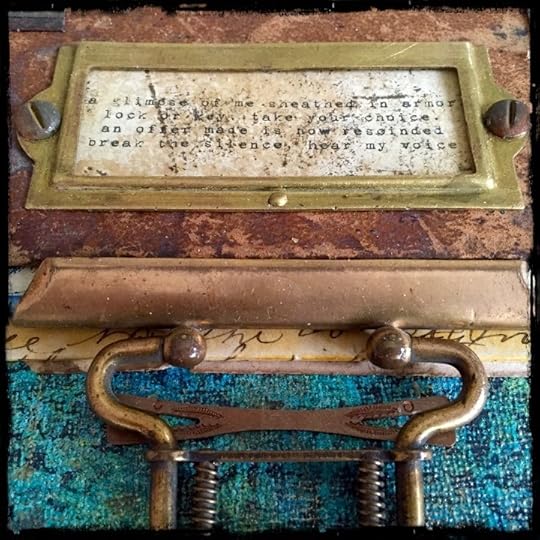 a glimpse of me sheathed in armor
lock or key, take your choice.
an offer made is now resoinded
break the silence, hear my voice